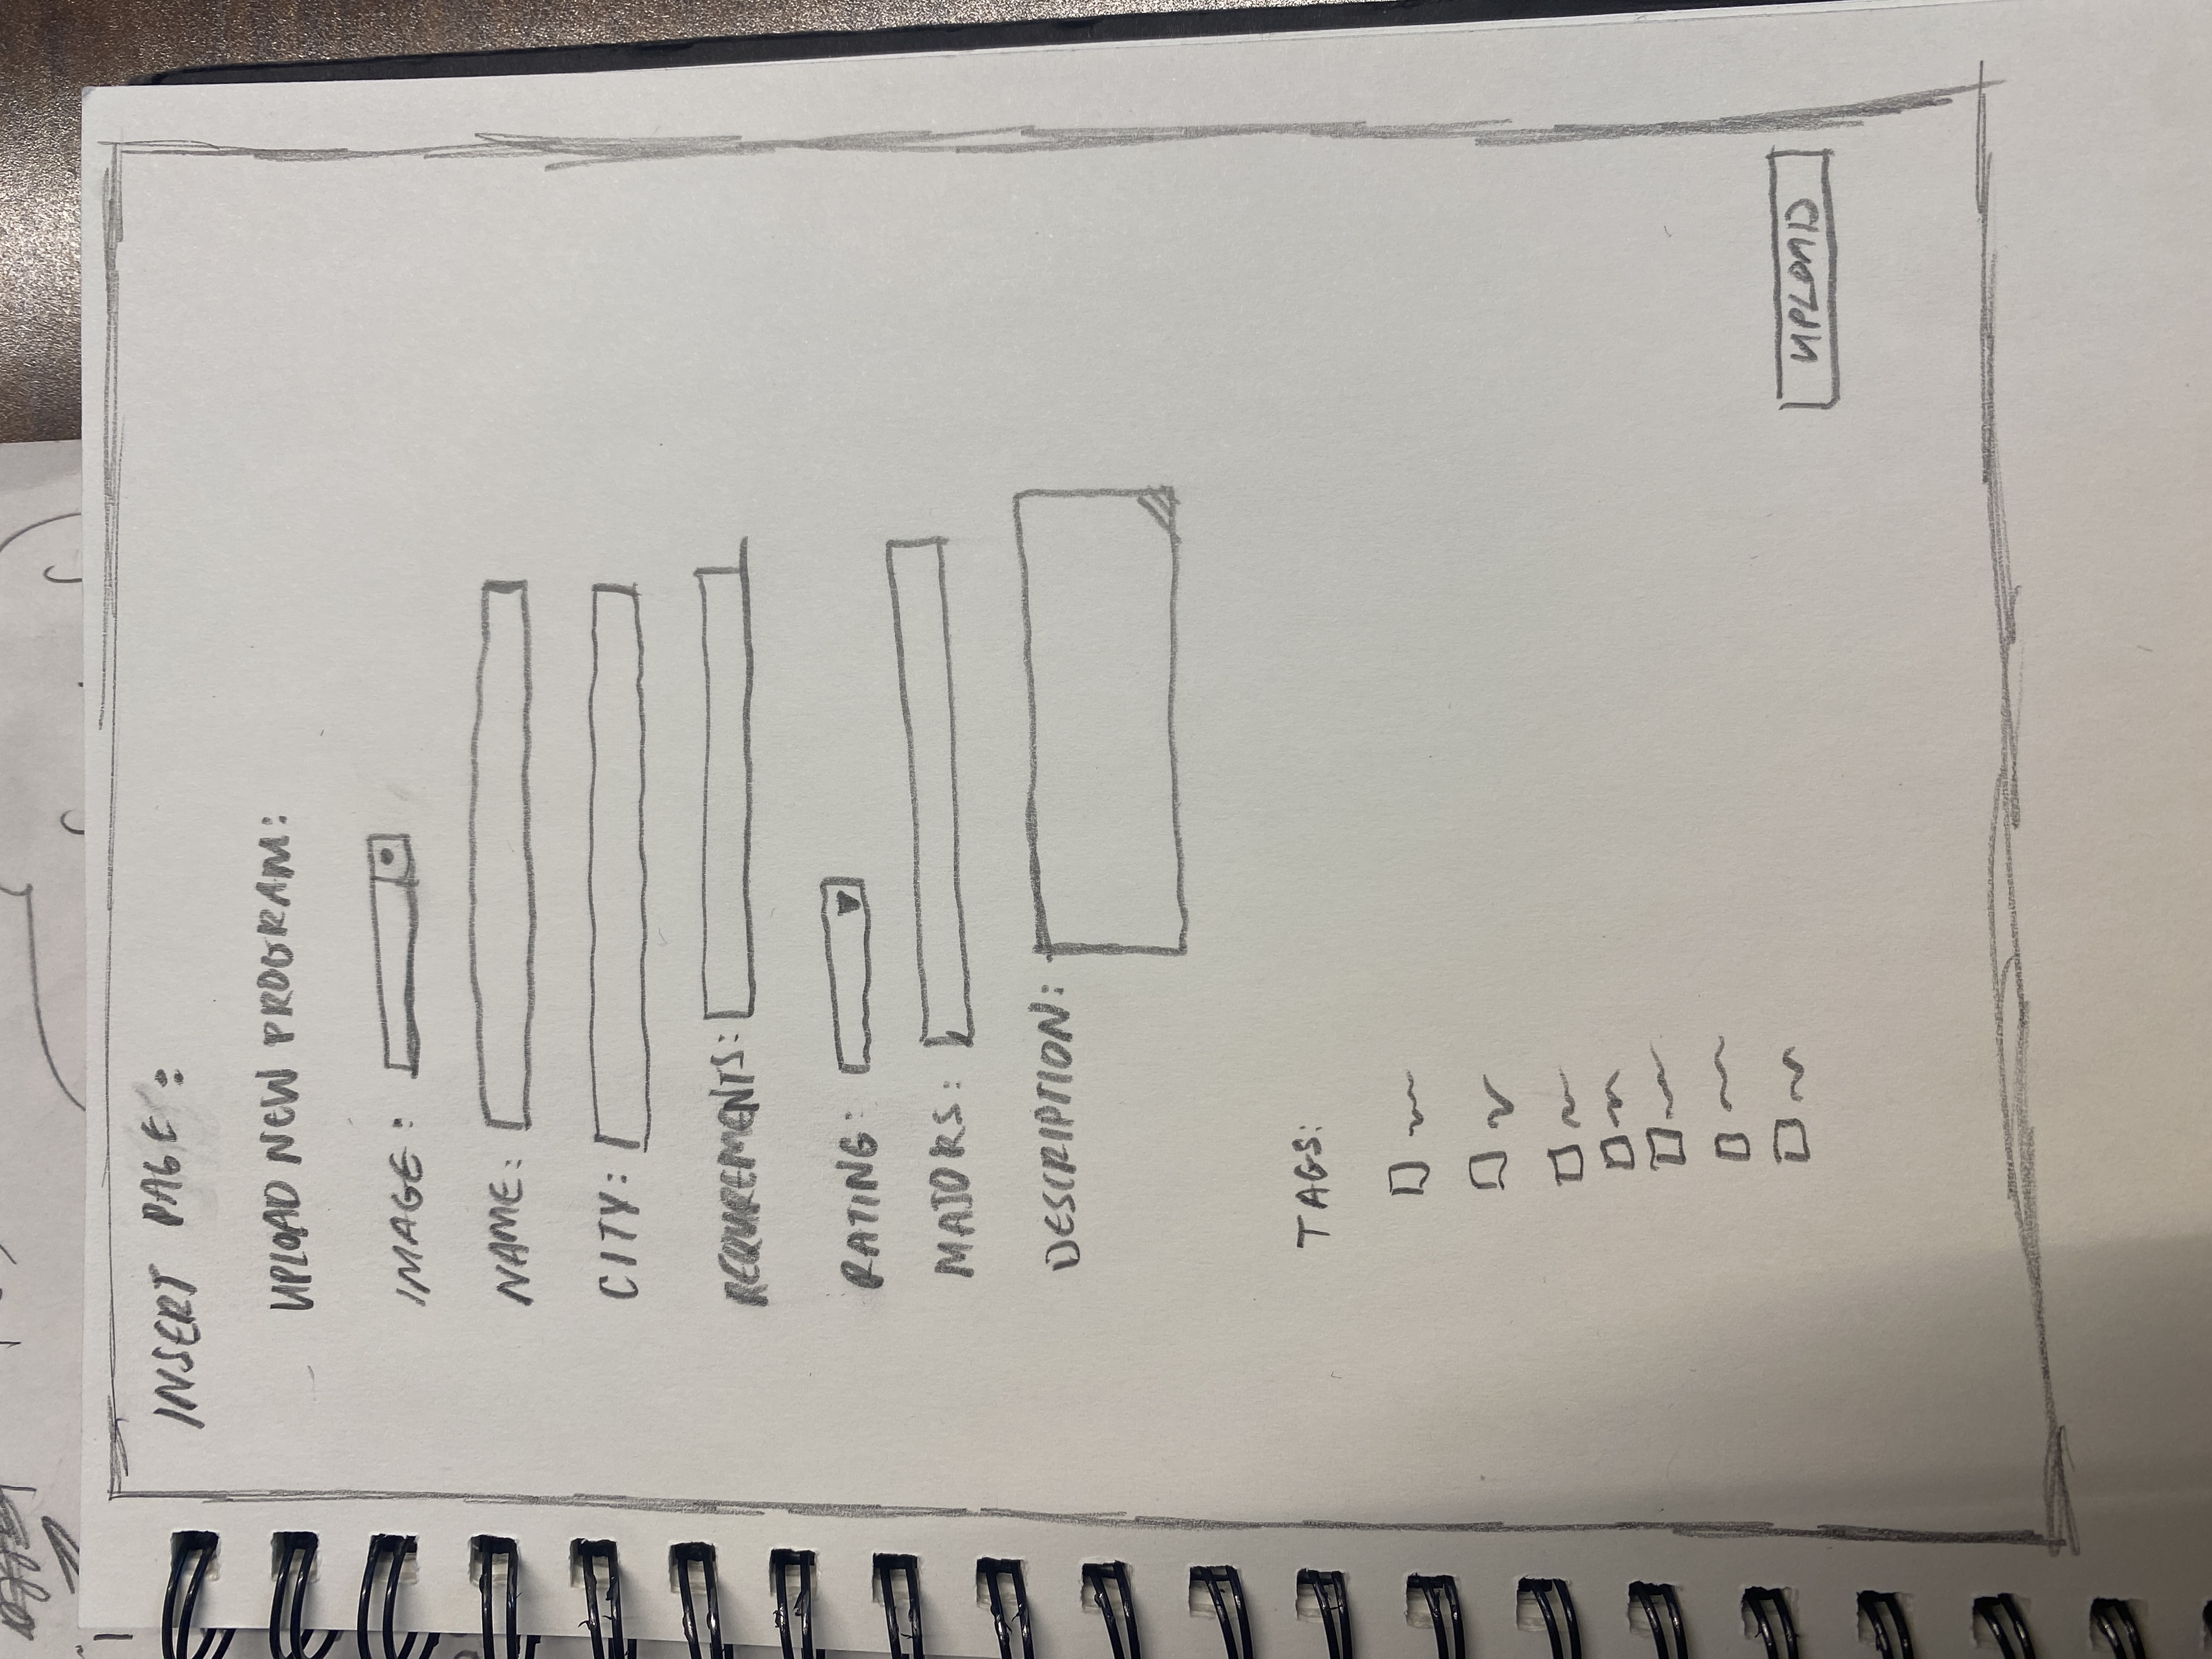 INSERT PAGE :
UPLOAD NEW PROGRAM:
IMAGE :
NAME:
CITY:
REQUREMENTS:
RATING:
MAJORS:
DESCRIPTION:
TAGS:
UPLOAD